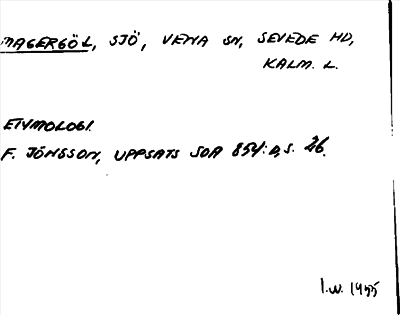 MAGERGÖL, SJÖ, VENA SN, SEVEDE HD,
KALM. L.
ETYMOLOGI.
F. JÖNSSON, UPPSATS SOA 854:D, S. 26.
I.W. 1955